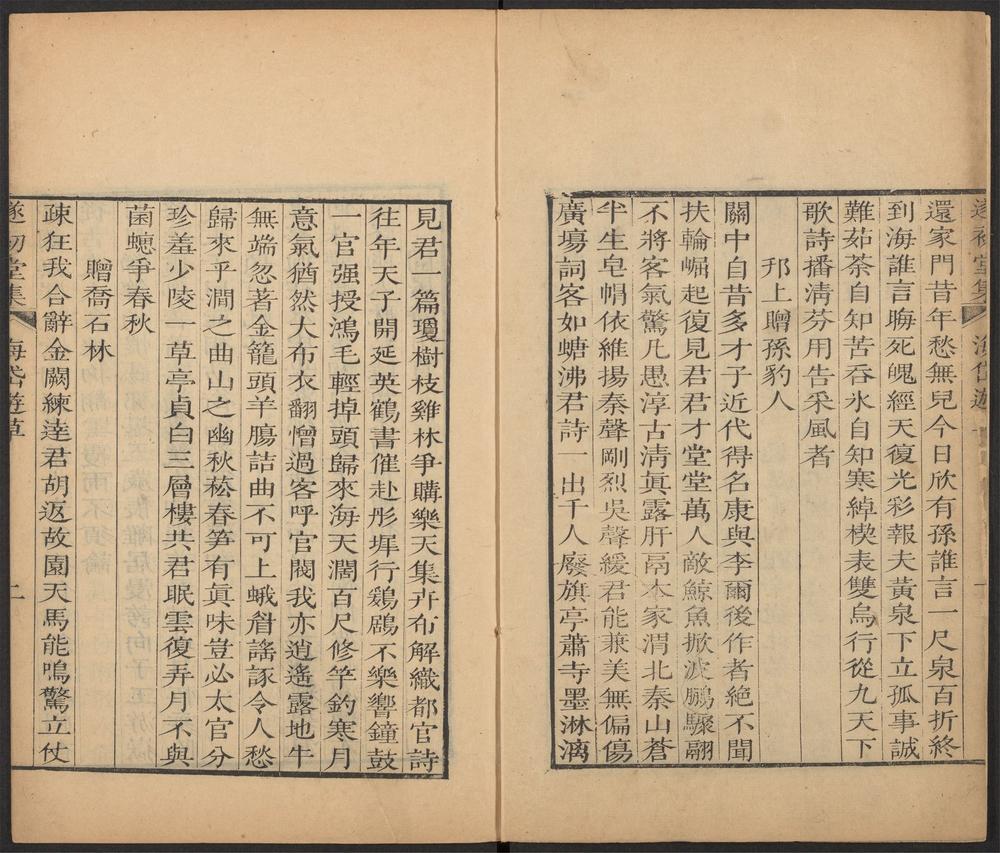 遂初堂集 海岱遊草
還家門昔年愁無兒今日欣有孫誰言一尺泉百折終
到海誰言晦死魄經天復光彩報夫黃泉下立孤事誠
難茹荼自知苦吞氷自知寒綽楔表雙烏行從九天下
歌詩播淸芬用告采風者
邗上贈孫豹人
關中自昔多才子近代得名康與李爾後作者絶不聞
扶輪崛起復見君君才堂堂萬人敵鯨魚掀波鵬驟翮
不將客氣驚凡愚淳古淸眞露肝鬲本家渭北秦山蒼
半生皂帽依維揚秦聲剛烈吳聲緩君能兼美無偏傷
廣塲詞客如螗沸君詩一出千人廢旗亭蕭寺墨淋漓
見君一篇瓊樹枝雞林爭購樂天集卉布解織都官詩
往年天子開延英鶴書催赴彤墀行鷄鶋不樂響鐘鼓
一官强授鴻毛輕掉頭歸來海天濶百尺修竿釣寒月
意氣猶然大布衣翻憎過客呼官閥我亦逍遙露地牛
無端忽著金籠頭羊腸詰曲不可上蛾眉謠諑令人愁
歸來乎澗之曲山之幽秋菘春笋有眞味豈必太官分
珍羞少陵一草亭貞白三層樓共君眠雲復弄月不與
菌蟪爭春秋
贈喬石林
疎狂我合辭金闕練達君胡返故園天馬能鳴驚立仗
遂初堂集 海岱遊草 二